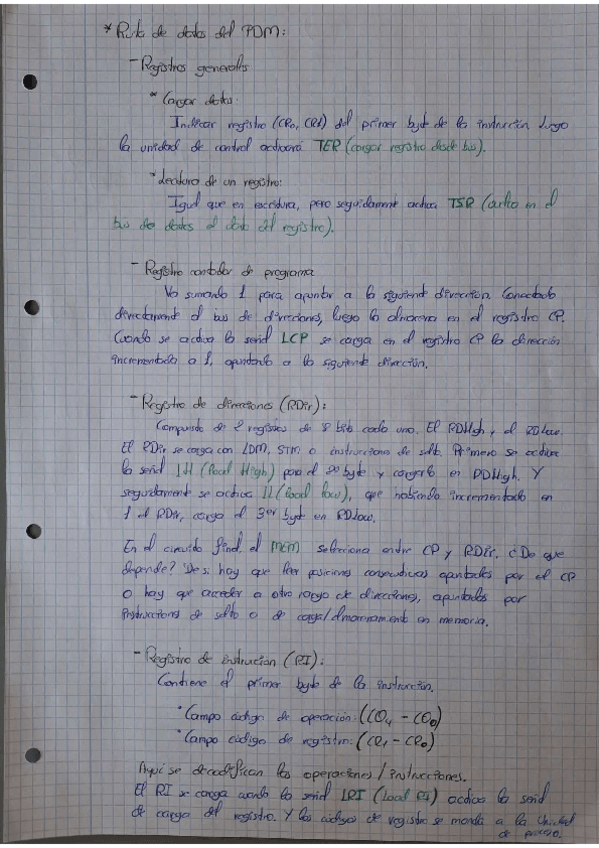 * Ruta de datos del PDM:
- Registros generales
* Cargar datos:
Indicar registro (CR0, CR1) del primer byte de la instrucción. Luego
la unidad de control activará TER (cargar registro desde bus).
* Lectura de un registro:
Igual que en escritura, pero seguidamente activa TSR (vuelca en el
bus de datos el dato del registro).
- Registro contador de programa
Va sumando 1 para apuntar a la siguiente dirección. Conectado
directamente al bus de direcciones, luego lo almacena en el registro CP.
Cuando se activa la señal LCP se carga en el registro CP la dirección
incrementada a 1, apuntando a la siguiente dirección.
- Registro de direcciones (RDir):
Compuesto de 2 registros de 8 bits cada uno. El RDHigh y el RDLow.
El RDir se carga con LDM, STM o instrucciones de salto. Primero se activa
la señal LH (Load High) para el 2º byte y cargarlo en RDHigh. Y
seguidamente se activa LL (Load low), que habiendo incrementado en
1 el RDir, carga el 3er byte en RDLow.
En el circuito final, el MCM selecciona entre CP y RDir. ¿De que
depende? De si hay que leer posiciones consecutivas apuntadas por el CP
o hay que acceder a otro rango de direcciones, apuntadas por
instrucciones de salto o de carga/almacenamiento en memoria.
- Registro de instrucción (RI):
Contiene el primer byte de la instrucción.
* Campo código de operación: (CO4 - CO0)
* Campo código de registro: (CR1 - CR0)
Aquí se decodifican las operaciones/instrucciones.
El RI se carga cuando la señal LRI (Load RI) activa la señal
de carga del registro. Y los códigos de registro se manda a la Unidad
de proceso.